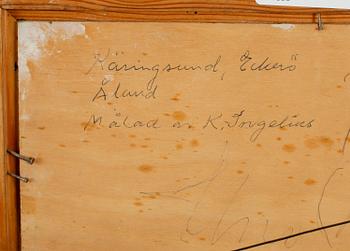 Käringsund, Eckerö
Åland
Målad av K. Ingelius